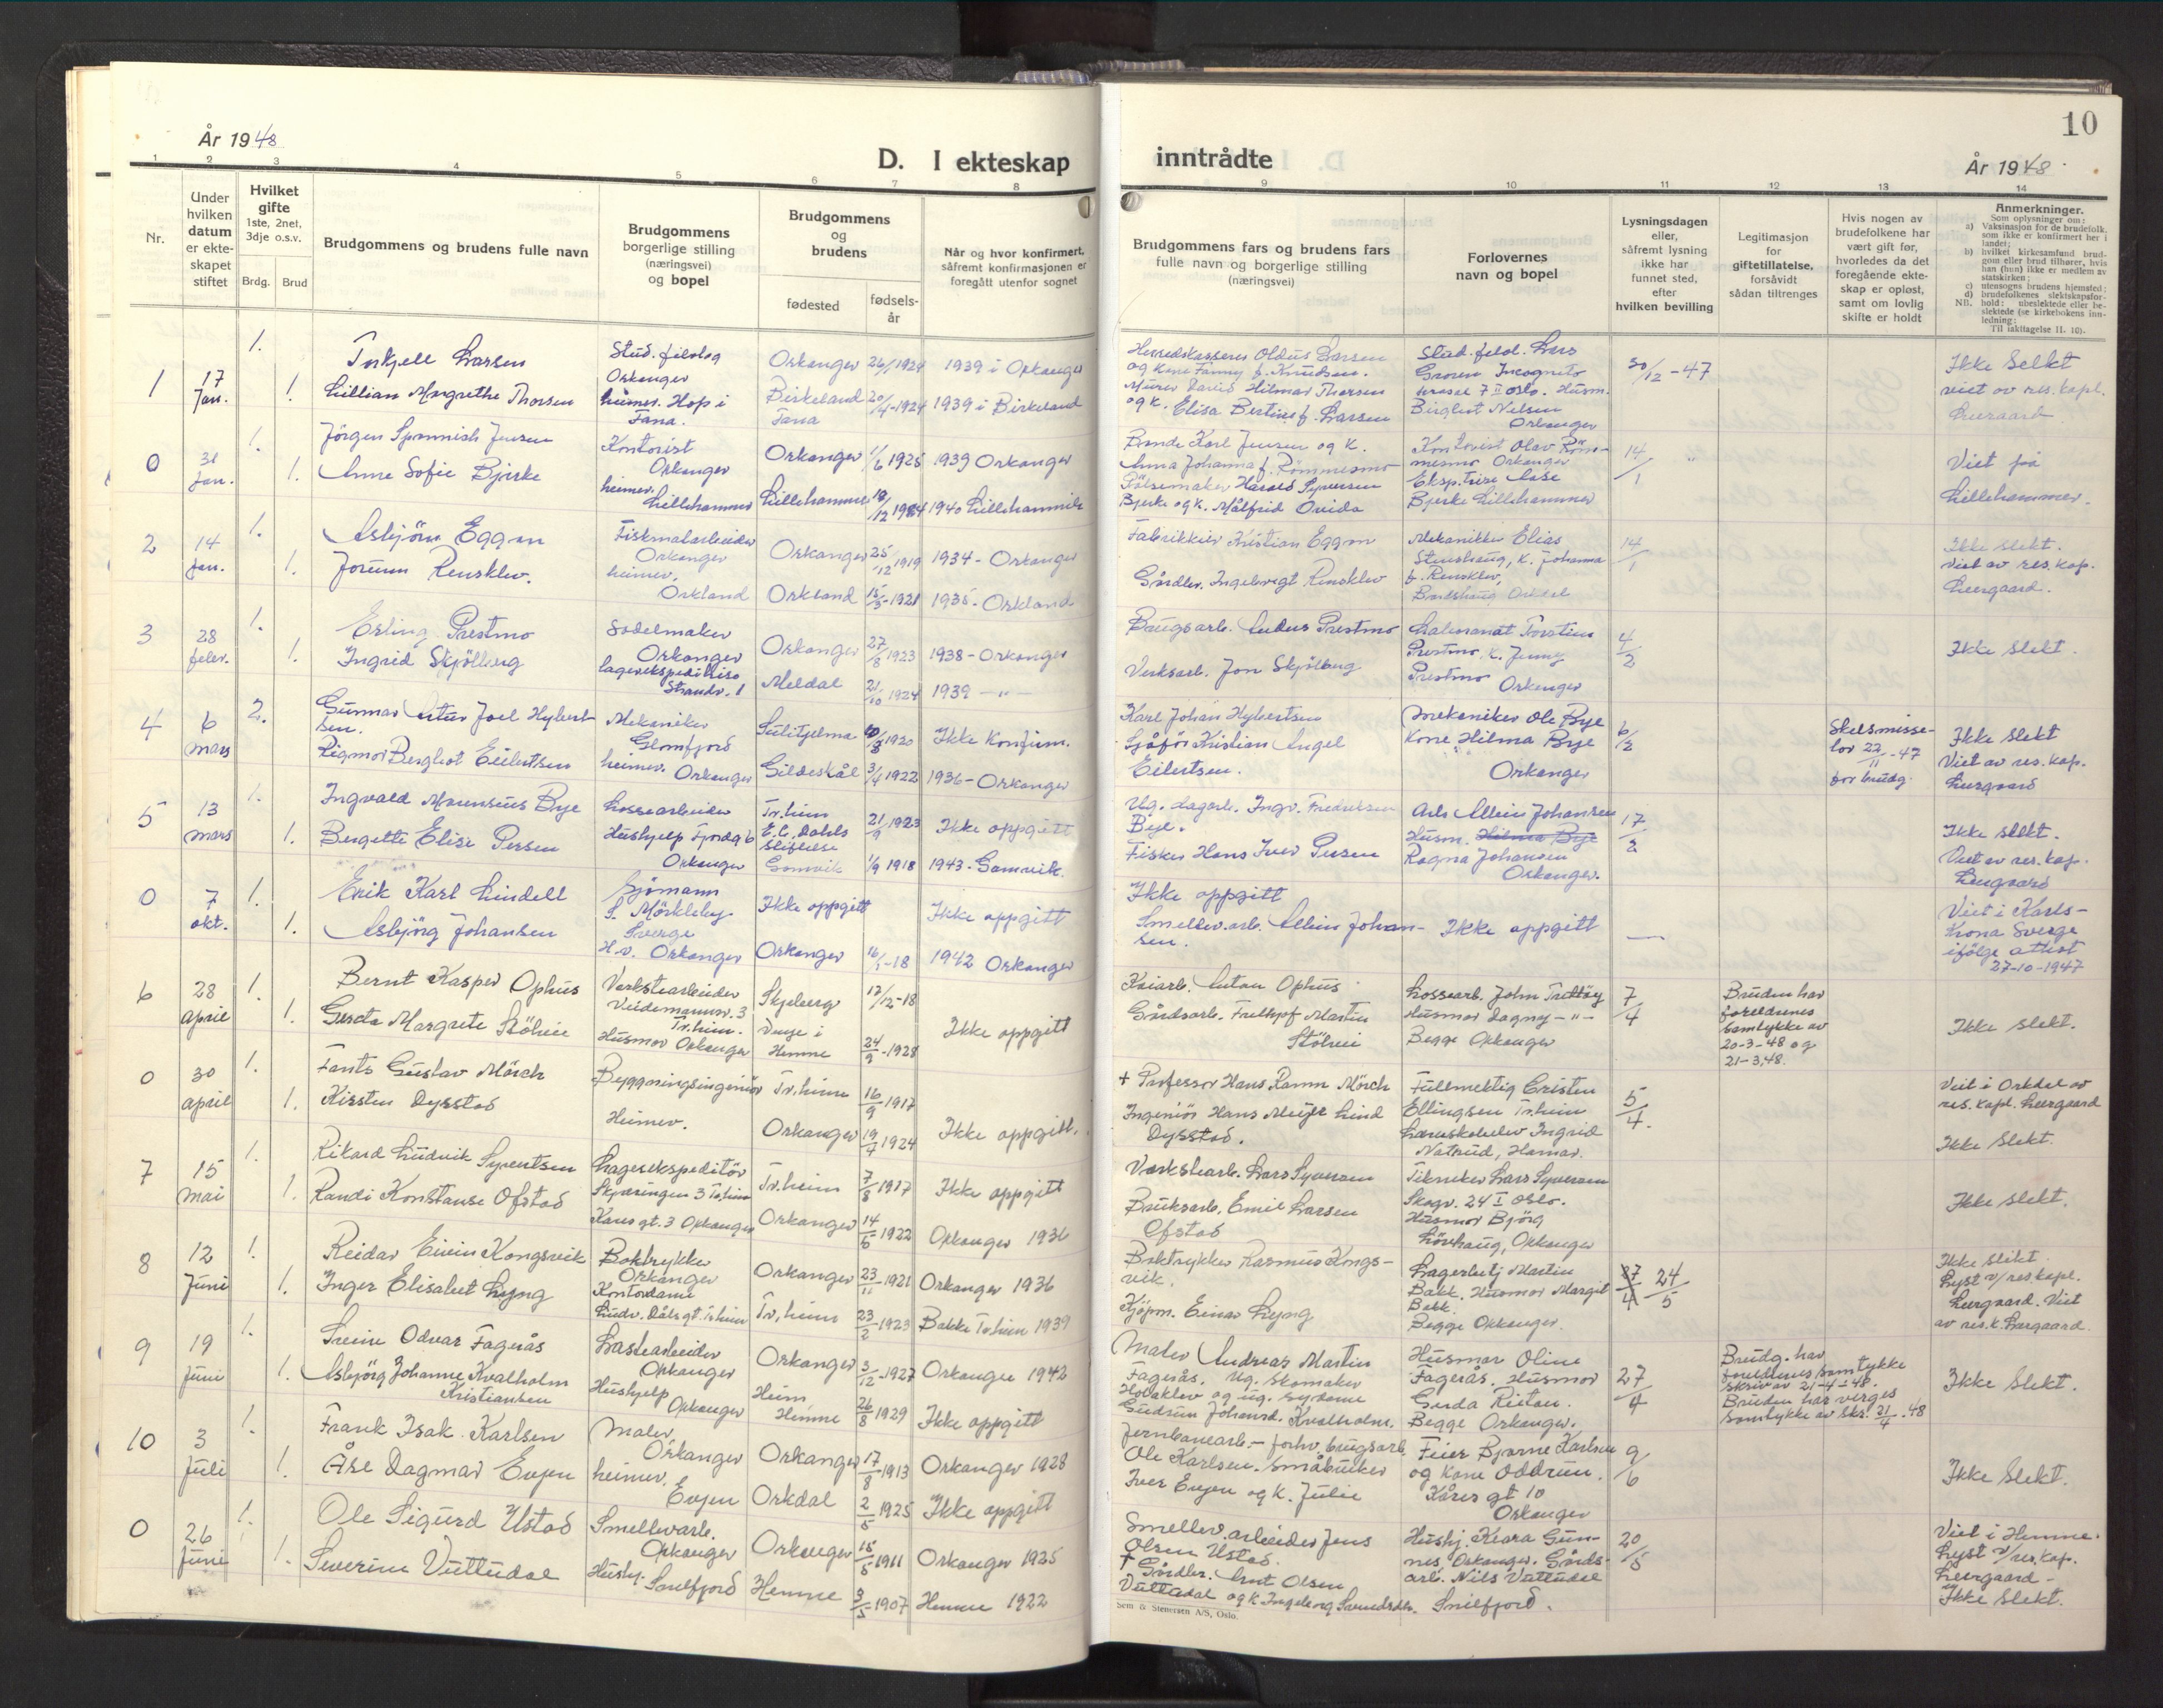 År 1948
D. I ekteskap
1 2 3 4 5 6 7 8
Nr.
Under hvilken datum er ekte-skapet stiftet
Hvilket gifte
1ste, 2net, 3dje o.s.v.
Brdg. Brud
Brudgommens og brudens fulle navn
Brudgommens borgerlige stilling (næringsvei) og bopel
Brudgommens og brudens
fødested
fødsels-år
Når og hvor konfirmert, såfremt konfirmasjonen er foregått utenfor sognet
1 17 Jan. 1. Torkjell Larsen Stud. filolog Orkanger Orkanger 26/1 1924 1939 i Orkanger
1. Lillian Margrethe Thorsen heimev. Hop i Fana. Birkeland Fana 20/4-1924 1939 i Birkeland
0 31 Jan. 1. Jörgen Jensen Kontorist Orkanger Orkanger 1/6 1925 1939 Orkanger
1. Anne Sofie Bjerke heimev. Lillehammer Lillehammer 18/12 1924 1940 Lillehammer
2 14 Jan. 1. Asbjörn Eggen Fiskmatarbeider Orkanger Orkanger 25/12 1919 1934 - Orkanger
1. Jorunn Rensklev. heimev. Orkland Orkland 1921 1935 - Orkland
3 28 febr. 1. Erling Prestmo Sodelmaker Orkanger Orkanger 27/8 1923 1938 - Orkanger
1. Ingrid Skjölberg lagerekspeditrise Strandv. 1 Meldal 21/10 1924 1939 - " -
4 6 mars 2. Gunnar Artur Joel Hybert-sen. Mekaniker Glomfjord Sulitjelma 1920 Ikke Konfirm.
Rigmor Bergliot Eilertsen heimev. Orkanger Gildeskål 3/4 1922 1936 - Orkanger
5 13 mars 1. Ingvald Mounsens Bye Lossearbeider Tr.heim E.C. Dahls stiftelse 21/9 1923 Ikke oppgitt
1. Bergette Elise Persen Hushjelp Fjordg 6 Orkanger Gamvik 1/9 1918 1943 - Gamvik.
0 7 okt. 1. Erik Karl Lindell Sjömann S. Mörkleby Sverge Ikke oppgitt Ikke oppgitt
1. Asbjörg Johansen H.v. Orkanger Orkanger 16/1-18 1942 Orkanger
6 28 april 1. Bernt Kasper Ophus Verkstearbeider Veidemannsv. 3 Tr.heim. Skjeberg 17/12-18
1. Gerda Margrete Stölsen Husmor Orkanger Vinje i Hemne 24/9-1928 Ikke oppgitt
0 30 april 1. Fants Gustav Mörch Byggningsingeniör Tr.heim 16/9 1917
1. Kirsten Dysstad Heimev. Orkanger 19/7 1924 Ikke oppgitt.
7 15 mai 1. Rikard Ludvik Syvertsen Lagerekspeditör Skjæringen 3 Tr.heim Tr.heim 7/8 1917 Ikke oppgitt
1. Randi Konstanse Ofstad Kaus gt. 3 Orkanger Orkanger 14/5 1922 Orkanger 1936
8 12 Juni 1. Reidar Eivin Kongsvik Boktrykker Orkanger Orkanger 23/11 1921 Orkanger 1936
1. Inger Elisabet Lyng Kontordame Ludv. Dåls gt. Tr.heim Tr.heim 23/2 1923 Bakke Tr.heim 1939
9 19 Juni 1. Svein Odvar Fagerås Lastearbeider Orkanger Orkanger 3/12-1927 Orkanger 1942
1. Asbjörg Johanne Kvalholm Kristiansen Hushjelp Orkanger Heim, Hemne 26/8 1929 Ikke oppgitt
10 3 Juli 1. Frank Isak Karlsen Maler, Orkanger Orkanger 17/8 1913 Orkanger 1928
1. Åse Dagmar Evjen heimev. Evjen Orkdal 2/5 1925 Ikke oppgitt
0 26 Juni 1. Ole Sigurd Ustad Smeltevarb. Orkanger Orkanger 15/5 1911 Orkanger 1925
1. Severine Vuttudal Hushj. Snilfjord Hemne 3/5-1907 Hemne 1922
10
inntrådte
År 1948
9 10 11 12 13 14
Brudgommens fars og brudens fars fulle navn og borgerlige stilling (næringsvei)
Forlovernes navn og bopel
Lysningsdagen eller, såfremt lysning ikke har funnet sted, efter hvilken bevilling
Legitimasjon for giftetillatelse, forsåvidt sådan tiltrenges
Hvis nogen av brudefolkene har vært gift før, hvorledes da det foregående ekte-skap er opløst, samt om lovlig skifte er holdt
Anmerkninger.
Som oplysninger om:
a) Vaksinasjon for de brudefolk, som ikke er konfirmert her i landet;
b) hvilket kirkesamfund brud-gom eller brud tilhører, hvis han (hun) ikke er medlem av statskirken;
c) utensogns brudens hjemsted;
d) brudefolkenes slektskapsfor-hold: ubeslektede eller be-slektede (se kirkebokens inn-ledning:
NB. Til iakttagelse II. 10).
Herredskasserer Oldus Larsen og kone Fanny f. Knudsen. Stud. Lars Groven Incognito 30/12-47 Ikke Selkt
Murer David Hilmar Thorsen og k. Elisa Bertine f. Larsen terasse 7 II Oslo. Husm. Bergliot Nelsen Orkanger viet av res. kapl. Leergaard
Bonde Karl Jensen og K. Anna Johanna f. Rommesmo Kontorist Olav Röm-mesmo Orkanger 14/1 " Viet på
Pölsemaker Harald Syversen Bjerke og k. Målfrid Ovida Eksp.trise Lase Bjerke Lillehammer Lillehammer.
Fabrikkeier Kristian Eggen Mekanikker Elias Stenshaug, K. Johanna f. Rensklev, 14/1 Ikke slekt. Viet av res. kap.
Gårdbr. Ingebrigt Rensklev Orkdal Leergaard.
Brugsarb. Ludvs Prestmo Torstein Prestmo, K. Jenny Prestmo Orkanger 4/2 Ikke slekt.
Verksarb. Jon Skjölberg
Karl Johan Hybertsen Mekaniker Ole Bye Kone Hilma Bye Orkanger 6/2 Skilsmisse-lov 22/11-47 for brudg. Ikke slekt
Sjåför Kristian Angel Eilertsen. Viet av res. kap. Leergaard
Ug. Lagarb. Ingv. Fredriksen Bye. Arb. Albin Johansen 17/2 Ikke slekt.
Fisker Hans Iver Persen Husm. Hilma Bye Ragna Johansen Orkanger. Viet av res. kap. Leergaard
Ikke oppgitt
Smeltev.arb. Albin Johan-sen. Ikke oppgitt — Viet i Karls-krona Sverge ifölge attest 27-10-1947
Kaiarb. Anton Ophus Lossearb. John Trettöy 7/4 Bruden har foreldrenes samtykke av 20-3-48 og 21-3.48. Ikke slekt.
Gårdsarb. Martin Stölsen Husmor Dagny - " - Begge Orkanger
† Professor Hans Ramm Mörch Fullmektig Cristen Ellingsen Tr.heim 5/4. Viet i Orkdal av res. kapl. Leergaard
Ingeniör Hans Meyer Lind Dysstad. Læreskolelev Ingrid Natrud, Hamar. Ikke Slekt.
Verkstearb. Lars Syversen Tekneker Lars Syversen Skogv. 24 I Oslo. Ikke Slekt.
Bruksarb. Emil Larsen Ofstad Husmor Björg Lövhaug, Orkanger
Boktrykker Rasmus Kongs-vik. Lagerbetj Martin Bakk. Husmor Margit Bakk. 27/4 24/5 Ikke Slekt. Lyst v/res. kapl.
Kjöpm. Einar Lyng Begge Orkanger. Leergaard. Viet av res. k. Leergaard.
Maler Andreas Martin Fagerås. Ug. Skomaker Husmor Oline Fagerås. Husmor 27/4 Brudg. har foreldrenes samtykke skriv av 21-4-48. Ikke Slekt.
Hovaklev og ug. syerske Gudrun Johansd. Kvalholm. Guda Reitan. Begge Orkanger. Bruden har verges samtykke av skr. 21/4-48
Jernbanearb. - forhv. brugsarb. Ole Karlsen. Småbruker Feier Bjarne Karlsen og kone Oddrun. 9/6 Ikke Slekt.
Iver Evjen og k. Julie Kåres gt 10 Orkanger
Smeltev.arbeider Jens Olsen Ustad. Hushj. Klara Gun-nes, Orkanger. Gårds-arb. Nils Vuttudal 20/5 Viet i Hemne. Lyst v/res. kap.
† Gårdbr. Arnt Olsen Vuttudal og k Ingeborg Snilfjord. Leergaard - Ikke Slekt.
Sem & Stenersen A/S, Oslo.